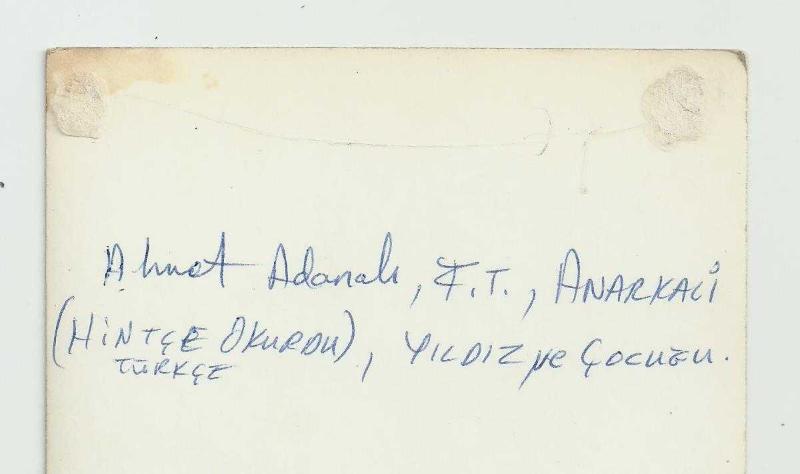 Ahmet Adanalı, F.T., ANARKALİ
(HİNTÇE OKURDU), YILDIZ ve Çocuğu.
TÜRKÇE